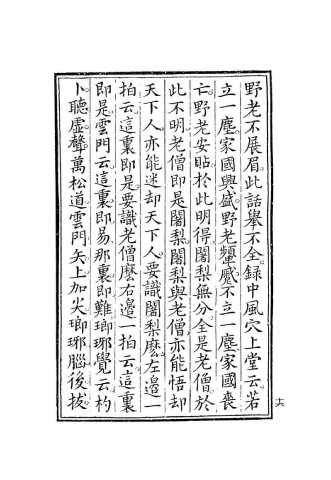 野老不展眉。此話舉不全。錄中風穴上堂云。若
立一塵。家國興盛。野老顰蹙。不立一塵。家國喪
亡。野老安貼。於此明得。闍梨無分。全是老僧。於
此不明。老僧即是闍梨。闍梨與老僧。亦能悟却
天下人。亦能迷却天下人。要識闍梨麽。左邊一
拍云。這裏即是。要識老僧麽。右邊一拍云。這裏
即是。雲門云。這裏即易。那裏即難。瑯琊覺云。杓
卜聽虛聲。萬松道。雲門矢上加尖。瑯琊腦後拔
十六